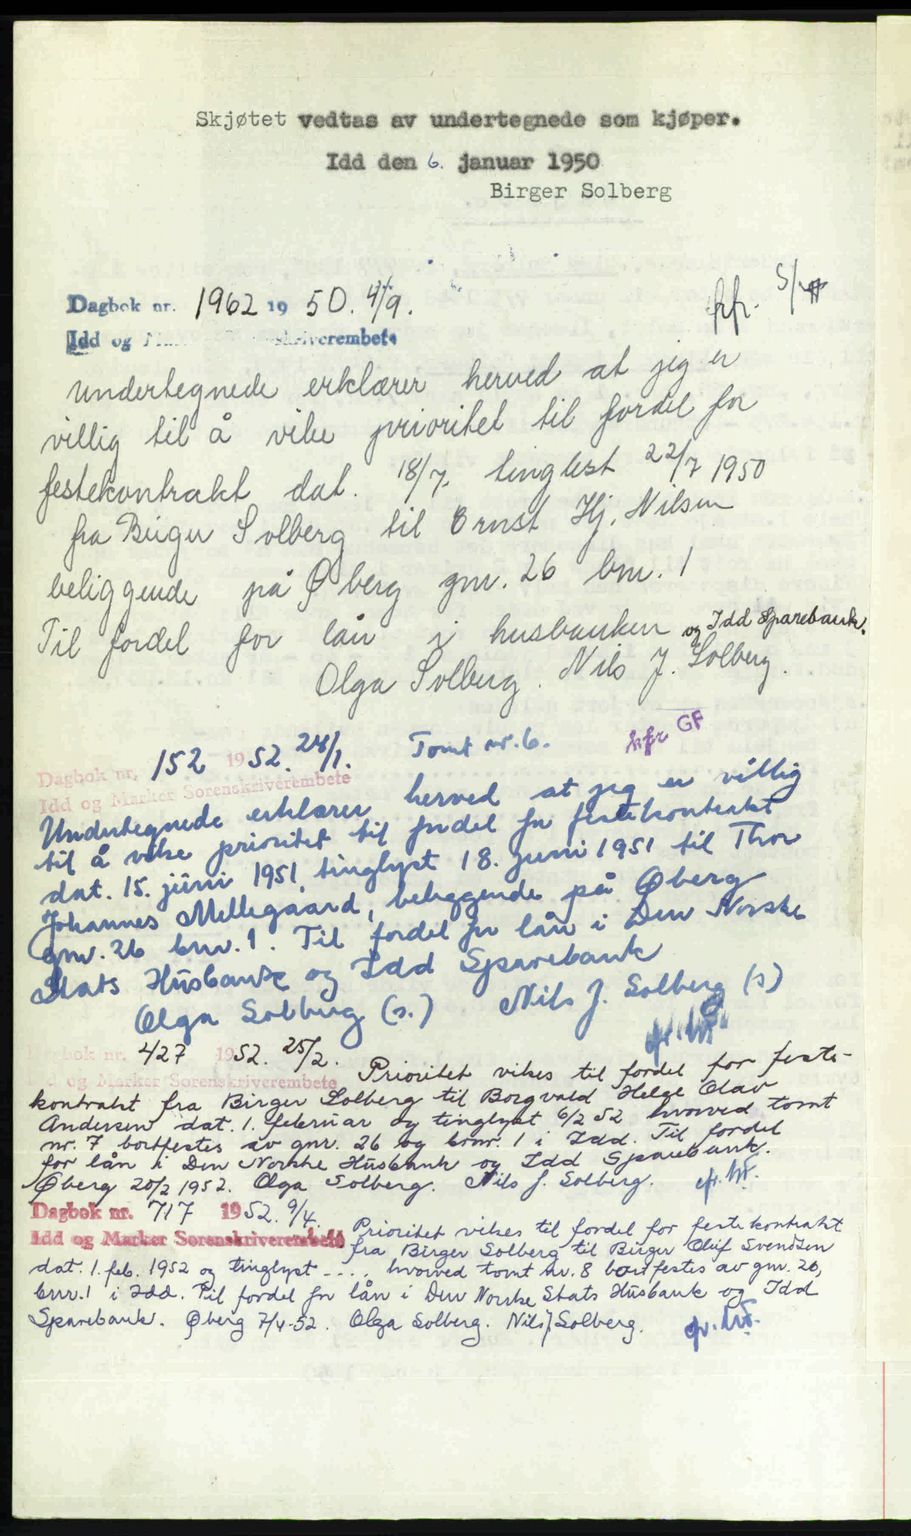 Skjøtet vedtas av undertegnede som kjøper.
Idd den 6. januar 1950
Birger Solberg
Dagbok nr. 1962 19 50. 4/9.
Idd og skriverembete
Undertegnede erklærer herved at jeg er
villig til å vike prioritet til fordel for
festekontrakt dat. 18/7. tinglest 22/7 1950
fra Birger Solberg til Ernst Hj. Nilsen
beliggende på Øberg gnr. 26 bnr. 1
Til fordel for lån i husbanken og Idd Sparebank.
Olga Solberg. Nils J. Solberg
Dagbok nr. 152 1952. 24/1. Tomt nr. 6. GF
Idd og Marker Sorenskriverembete
Undertegnede erklærer herved at jeg er villig
til å vike prioritet til fordel for festekontrakt
dat. 15. juni 1951, tinglyst 18. juni 1951 til Thor
Johannes Mellegaard, beliggende på Øberg
gnr. 26 bnr. 1. Til fordel for lån i Den Norske
Stats Husbank og Idd Sparebank
Olga Solberg (s.) Nils J. Solberg (s)
Dagbok nr. 427 1952. 25/2. Prioritet vikes til fordel for feste-
Idd og Marker Sorenskriverembete
kontrakt fra Birger Solberg til Borgvald Helge Olav
Andersen dat. 1. februar og tinglyst 6/2 52 hvorved tomt
nr. 7 bortfestes av gnr. 26 og bnr. 1 i Idd. Til fordel
for lån i Den Norske Husbank og Idd Sparebank.
Øberg 20/2 1952. Olga Solberg. Nils J. Solberg.
Dagbok nr. 717 1952. 9/4. Prioritet vikes til fordel for festekontrakt
Idd og Marker Sorenskriverembete fra Birger Solberg til Birger Oluf Svendsen
dat. 1. feb. 1952 og tinglyst .... hvorved tomt nr. 8 bortfestes av gnr. 26,
bnr. 1 i Idd. Til fordel for lån i Den Norske Stats Husbank og Idd
Sparebank. Øberg 7/4-52. Olga Solberg. Nils J. Solberg.